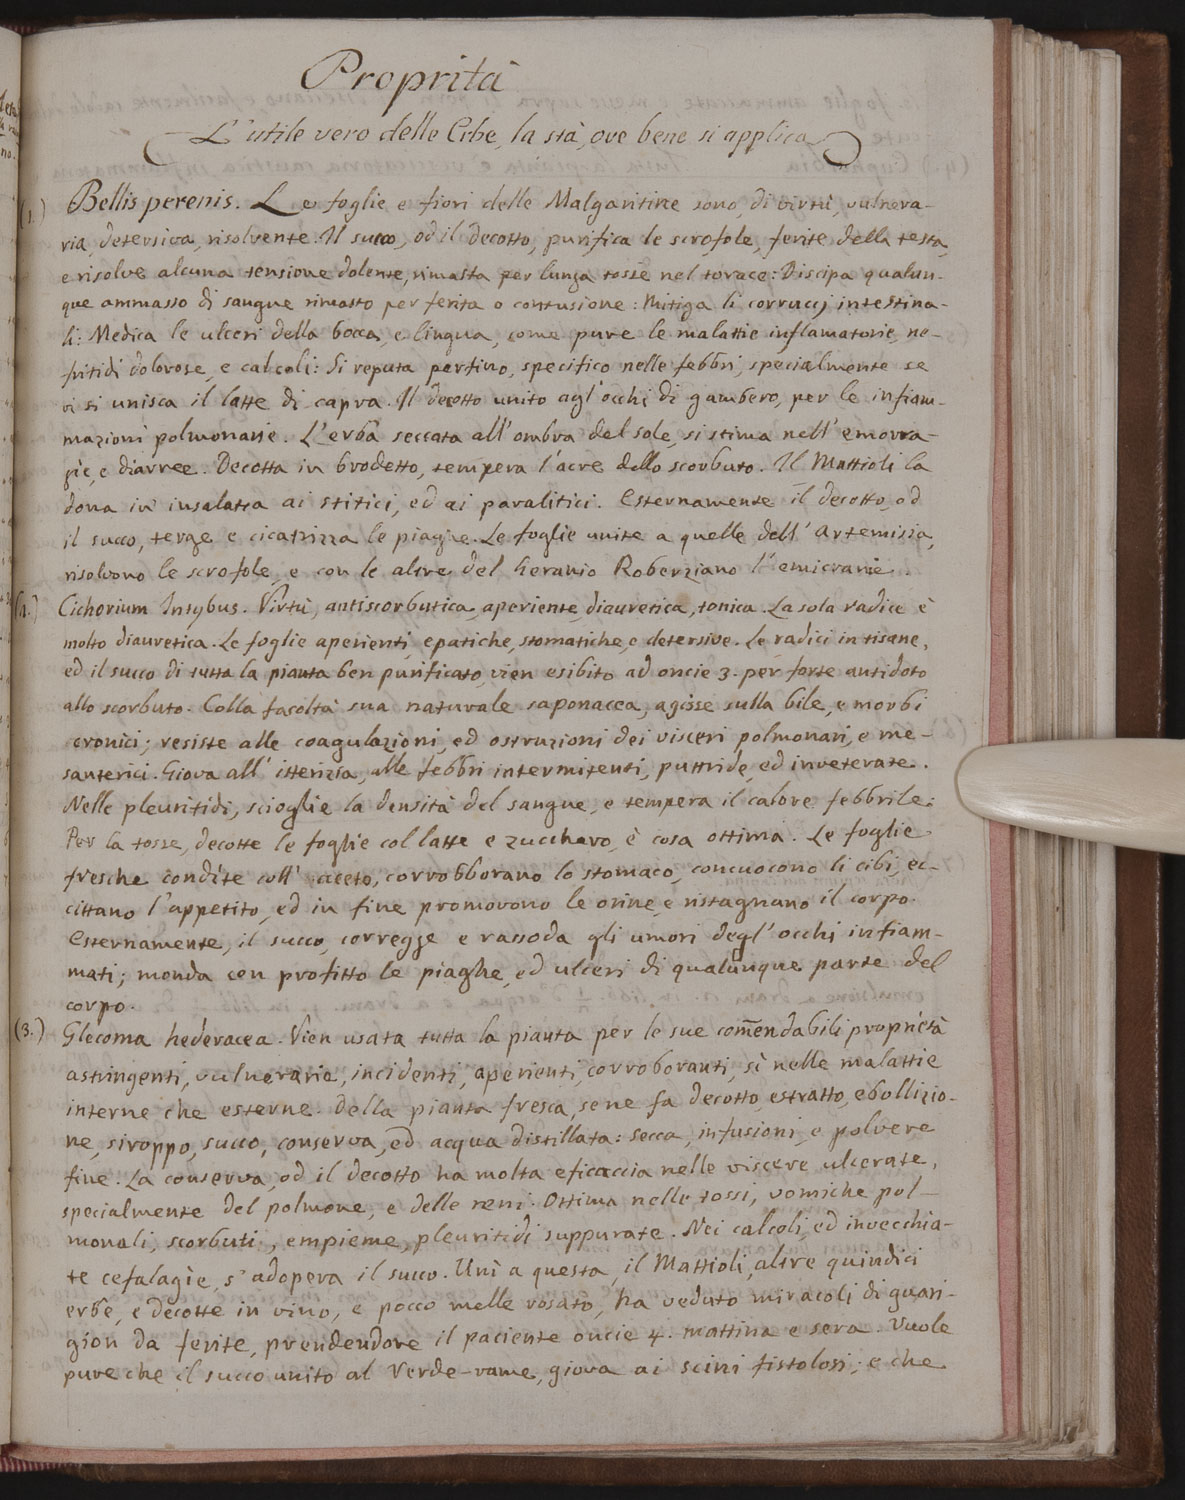 Proprità
L'utile vero delle Erbe, la stà, ove bene si applica
(1.) Bellis perenis. Le foglie e fiori delle Malgaritine sono, di virtù, vulnera-
ria, detersiva, risolvente. Il succo, od il decotto, purifica le scrofole, ferite della testa,
e risolve alcuna tensione dolente, rimasta per lunga tosse nel torace: Discipa qualun-
que ammasso di sangue rimasto per ferita o contusione: Mitiga li corruccj intestina-
li: Medica le ulceri della bocca, e lingua, come pure le malattie inflamatorie, ne-
fritidi dolorose, e calcoli: Si reputa perfino, specifico nelle febbri, specialmente se
vi si unisca il latte di capra. Il decotto unito agl'occhi di gambero, per le infiam-
mazioni polmonarie. L'erba seccata all'ombra del sole, si stima nell'emorra-
gie, e diarree. Decotta in brodetto, tempera l'acre dello scorbuto. Il Mattioli la
dona in insalatta ai stitici, ed ai paralitici. Esternamente il decotto, od
il succo, terge e cicatrizza le piaghe. Le foglie unite a quelle dell'Artemisia,
risolvono le scrofole, e con le altre del Geranio Roberziano l'emicranie.
Cichorium Intybus. Virtù, antiscorbutica, aperiente, diauretica, tonica. La sola radice è
molto diauretica. Le foglie aperienti, epatiche, stomatiche, e detersive. Le radici in tisane,
ed il succo di tutta la pianta ben purificato, vien esibito ad oncie 3. per forte antidoto
allo scorbuto. Colla facoltà sua naturale saponacea, agisse sulla bile, e morbi
cronici; resiste alle coagulazioni, ed ostruzioni dei visceri polmonari, e me-
santerici. Giova all'itterizia, alle febbri intermitenti, puttride, ed inveterate.
Nelle pleuritidi, scioglie la densità del sangue, e tempera il calore febbrile:
Per la tosse, decotte le foglie col latte e zucchero, è cosa ottima. Le foglie
fresche condite coll'aceto, corrobborano lo stomaco, concuocono li cibi, ec-
cittano l'appetito, ed in fine promovono le orine, e ristagnano il corpo.
Esternamente, il succo, corregge e rassoda gli umori degl'occhi infiam-
mati; monda con profitto le piaghe, ed ulceri di qualunque parte del
corpo.
(3.) Glecoma hederacea. Vien usata tutta la pianta per le sue com̃endabili proprietà
astringenti, vulneraria, incidenti, aperienti, corroboranti, sì nelle malattie
interne che esterne. Della pianta fresca, se ne fa decotto, estratto, ebollizio-
ne, siroppo, succo, conserva, ed acqua distillata: secca, infusioni, e polvere
fine. La conserva, od il decotto ha molta eficaccia nelle viscere ulcerate,
specialmente del polmone, e delle reni. Ottima nelle tossi, vomiche pol-
monali, scorbuti, empieme, pleuritidi suppurate. Nei calcoli, ed invecchia-
te cefalagie, s'adopera il succo. Unì a questa, il Mattioli, altre quindici
erbe, e decotte in vino, e pocco melle rosato, ha veduto miracoli di guari-
gion da ferite, prendendone il paciente oncie 4. mattina e sera. Vuole
pure che il succo unito al Verde-rame, giova ai scini fistolosi; e che